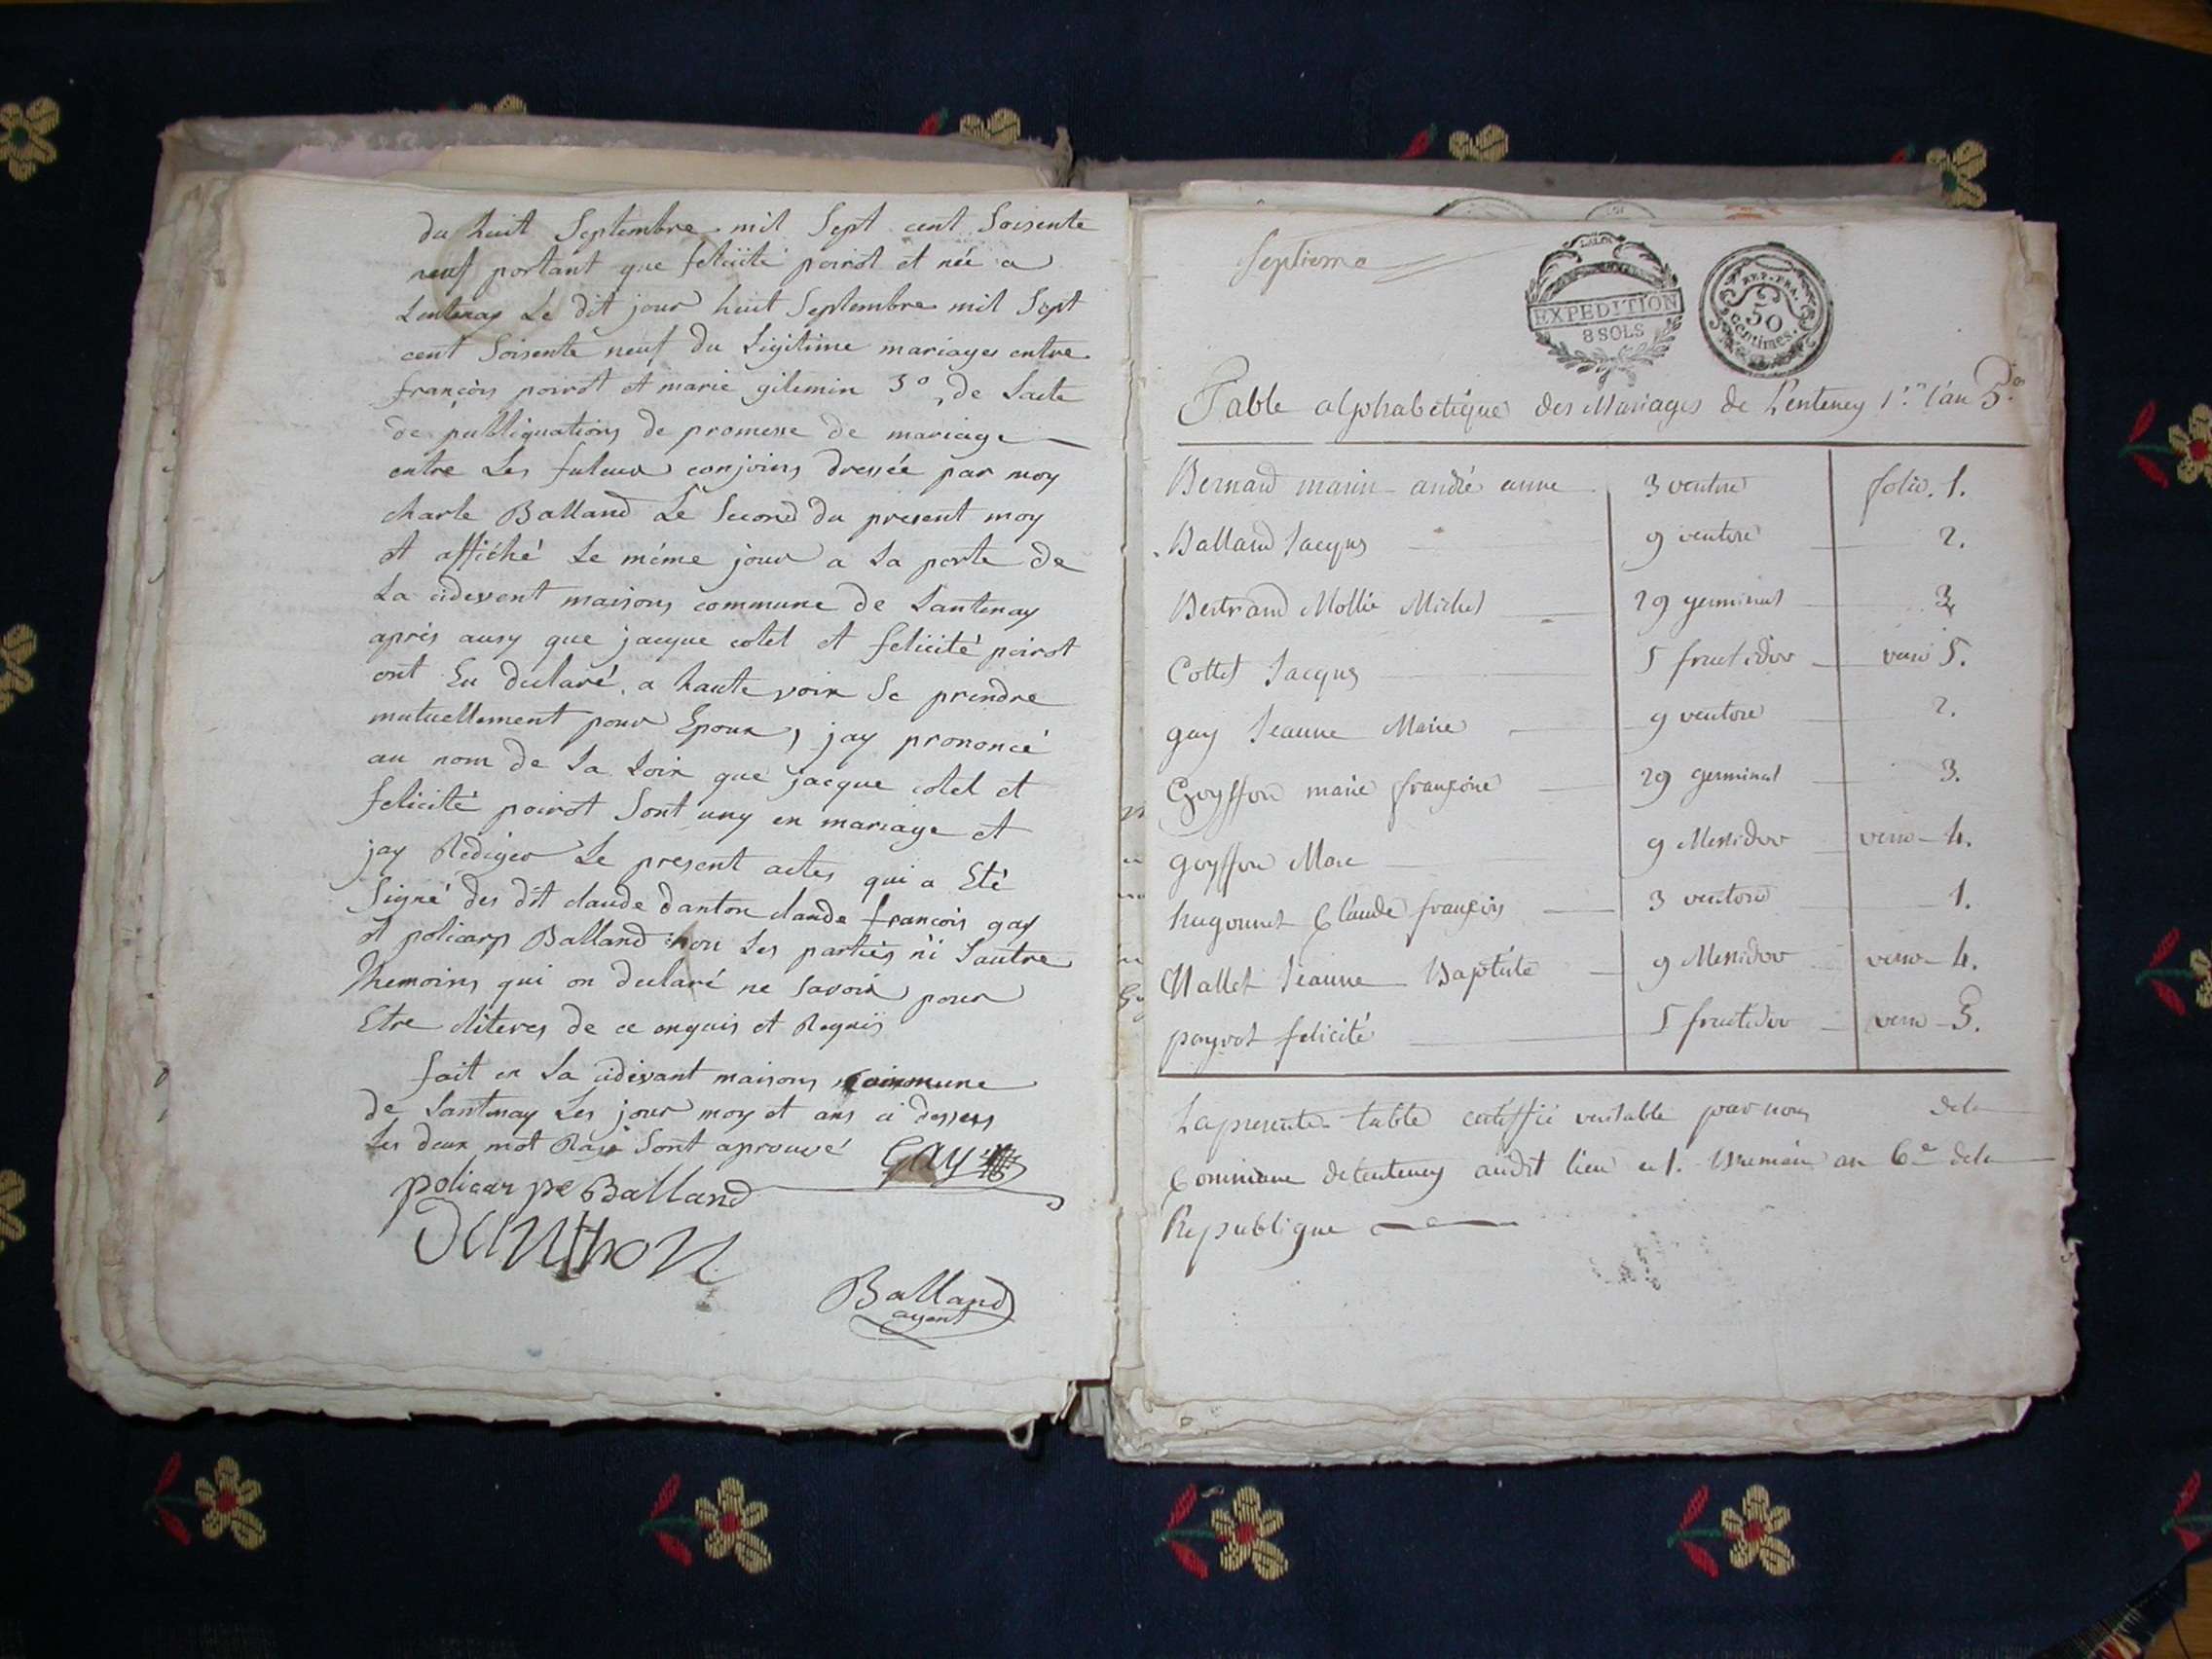 du huit Septembre mil Sept cent Soisente
neuf portant que felicité poirot et née a
Lentenay Le dit jour huit Septembre mil Sept
cent Soisente neuf du Ligitime mariages entre
françois poirot et marie gilemin 3º de Lacte
de publiquations de promesse de mariage
entre Les futeur conjoins dressée par moy
charle Balland Le Second du present moy
et affiché Le méme jour a La porte de
La cidevent maisons commune de Lantenay
aprés ausy que jacque cotel et felicité poirot
ont Eu declaré a haute voix Se prendre
mutuellement pour Epoux, jay prononcé
au nom de La Loix que jacque cotel et
felicité poirot Sont uny en mariage et
jay Rediger Le present actes qui a Eté
Signé des dit claude danton claude françois gay
et policarp Balland non Les parties n'i Lautre
themoins qui on declaré ne Savoir pour
Etre de ce enquis et Requis
fait en La cidevant maisons commune
de Lantenay Les jour moy et ans ci dessus
Les deux mot Raié Sont aprouvé GAY
policarpe Balland
Danthon
Balland
agent
Septieme
EXPEDITION
8 SOLS
REP. FRA.
50
centimes.
Table alphabétique des Mariages de Lenteney l'an 5e
Bernard marin - andré anne 3 ventose folio. 1.
Balland Jacques 9 ventose 2.
Bertrand Mollie Michel 29 germinal 3
Cottet Jacques 5 fructidor verso 5.
gay Jeanne Marie 9 ventose 2.
Goyffon marie françoise 29 germinal 3.
goyffon Marc 9 Messidor verso - 4.
hugonnet Claude françois 3 ventose 1.
Mallet Jeanne Baptiste 9 Messidor verso - 4.
poyrot felicité 5 fructidor verso - 5.
La presente table certiffié veritable par nous de la
Commune de Lenteney audit lieu le 1. Brumaire an 6e de la
Republique